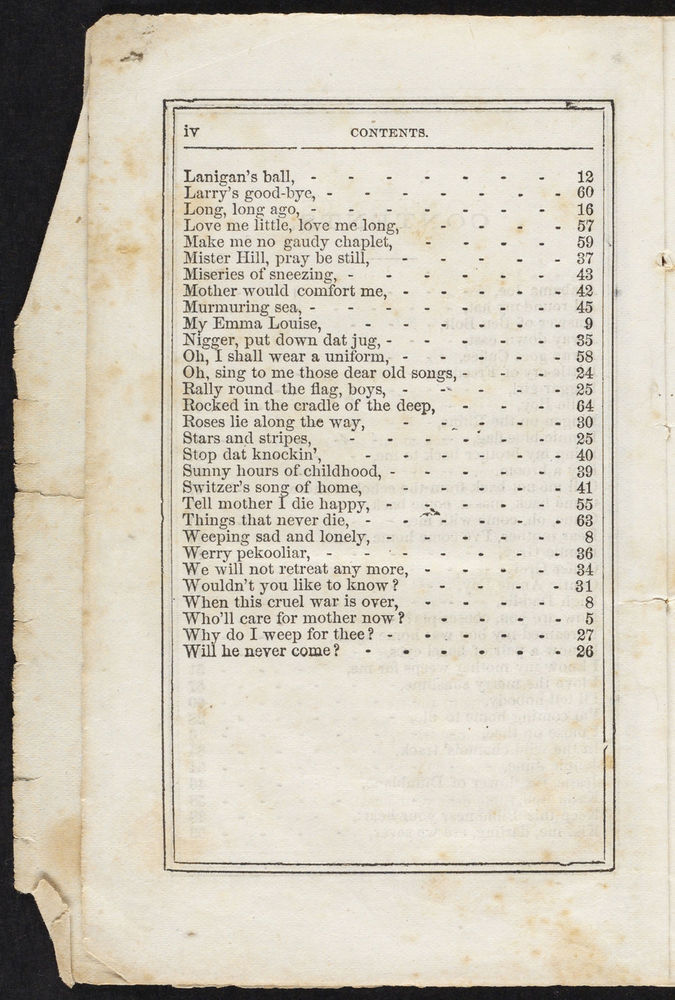 iv CONTENTS.
Lanigan's ball, - - - - - - - - 12
Larry's good-bye, - - - - - - - - 60
Long, long ago, - - - - - - - - 16
Love me little, love me long, - - - - - 57
Make me no gaudy chaplet, - - - - - 59
Mister Hill, pray be still, - - - - - 37
Miseries of sneezing, - - - - - - - 43
Mother would comfort me, - - - - - 42
Murmuring sea, - - - - - - - - 45
My Emma Louise, - - - - - - - 9
Nigger, put down dat jug, - - - - - - 35
Oh, I shall wear a uniform, - - - - - 58
Oh, sing to me those dear old songs, - - - - 24
Rally round the flag, boys, - - - - - 25
Rocked in the cradle of the deep, - - - - 64
Roses lie along the way, - - - - - 30
Stars and stripes, - - - - - - - 25
Stop dat knockin', - - - - - - 40
Sunny hours of childhood, - - - - - - 39
Switzer's song of home, - - - - - 41
Tell mother I die happy, - - - - - - 55
Things that never die, - - - - - - 63
Weeping sad and lonely, - - - - - - 8
Werry pekooliar, - - - - - - - - 36
We will not retreat any more, - - - - - 34
Wouldn't you like to know? - - - - - 31
When this cruel war is over, - - - - - 8
Who'll care for mother now? - - - - - 5
Why do I weep for thee? - - - - - - 27
Will he never come? - - - - - - 26